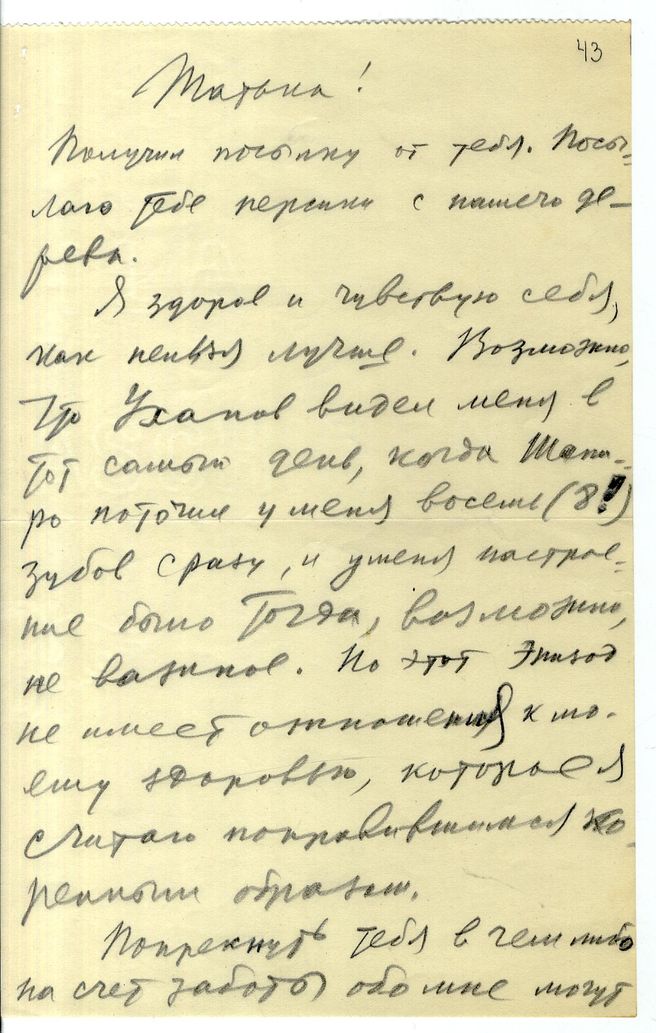 43
Татька!
Получил посылку от тебя. Посы-
лаю тебе персики с нашего де-
рева.
Я здоров и чувствую себя,
как нельзя лучше. Возможно,
что Уханов видел меня в
тот самый день, когда Шапи-
ро поточил у меня восемь (8!)
зубов сразу, и у меня настрое-
ние было тогда, возможно,
не важное. Но этот эпизод
не имеет отношения к мо-
ему здоровью, которое я
считаю поправившимся ко-
ренным образом.
Попрекнуть тебя в чем либо
на счет заботы обо мне могут